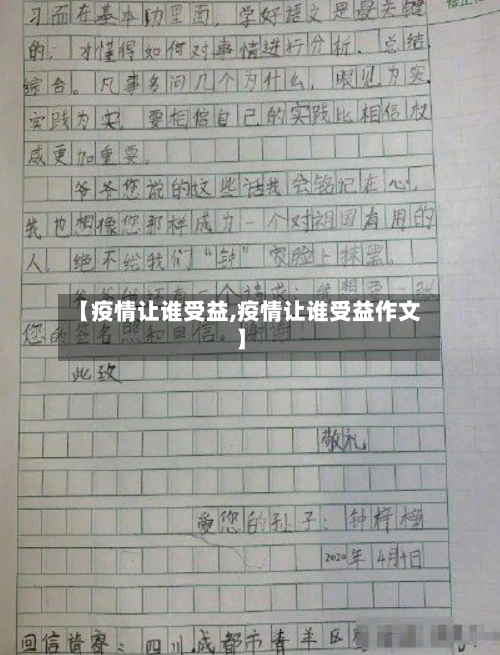 习而在基本功里面，学好语文是最关键
的，才懂得如何对事情进行分析、总结、
综合。凡事多问几个为什么，眼见为实，
实践为实，要相信自己的实践比相信权
威更加重要。
爷爷您说的这些话我会铭记在心，
我也想像您那样成为一个对祖国有用的
人，绝不给我们“钟”家脸上抹黑。
【疫情让谁受益,疫情让谁受益作文
】
您的签名照和回信。谢谢！
此致
敬礼
爱您的孙子：钟梓橦
2020年4月4日
回信皆寄：四川成都市青羊区